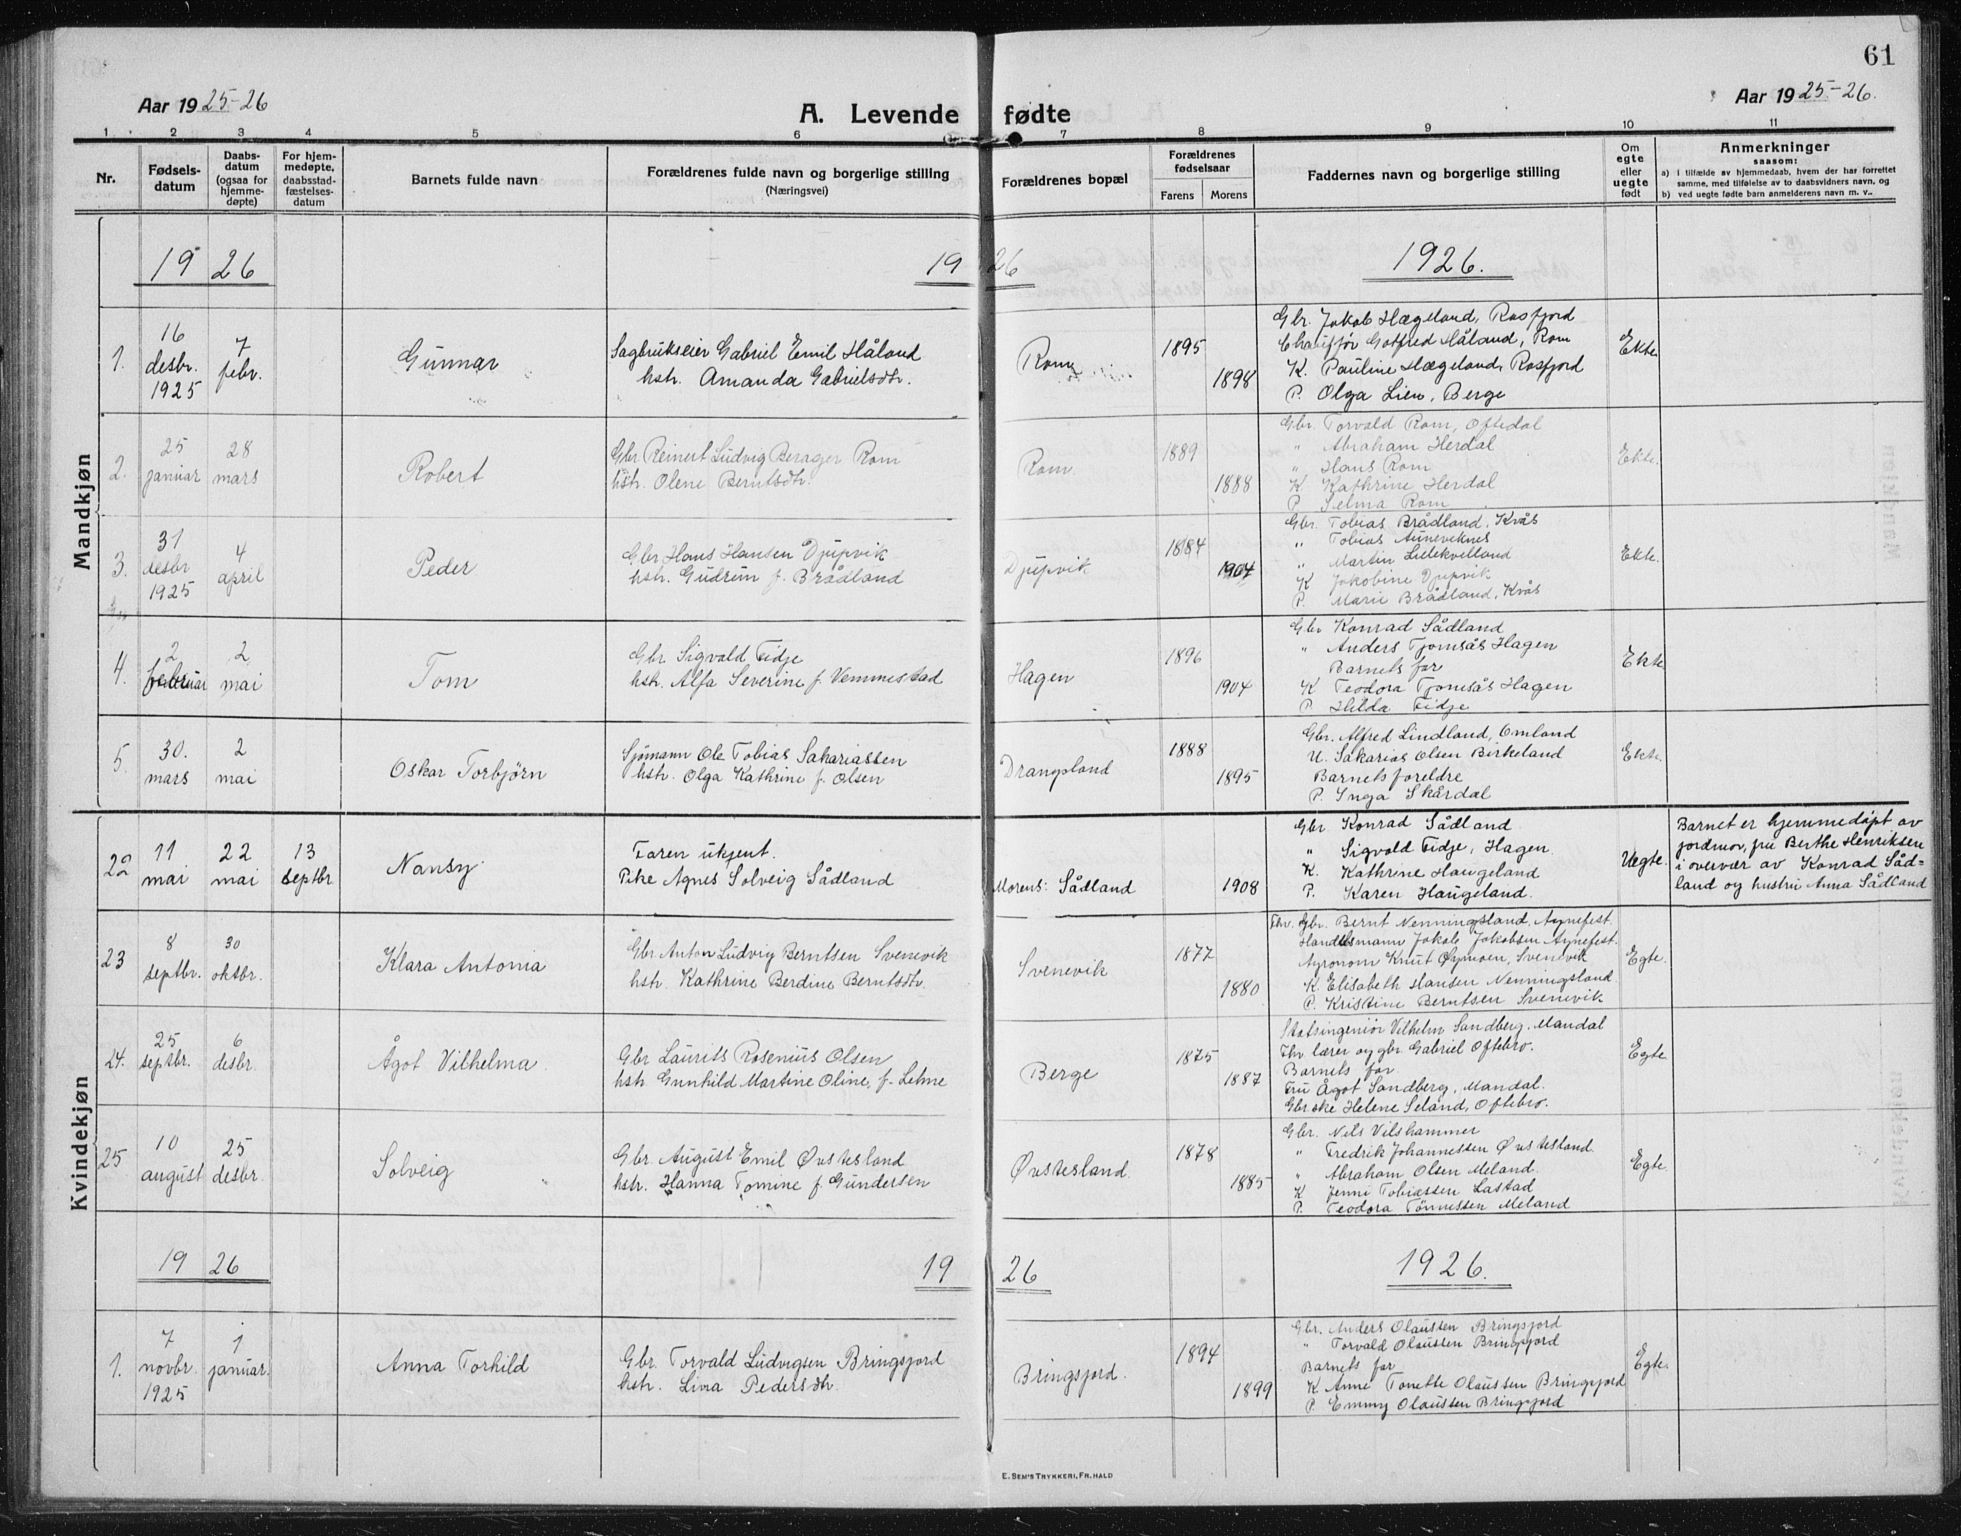 61
Aar 1925-26
A. Levende fødte
Aar 1925-26.
1. 2 3 4 5 6 7 8 9 10 11
Nr.
Fødsels-
datum
Daabs-
datum
(ogsaa for
hjemme-
døpte)
For hjem-
medøpte,
daabsstad-
fæstelses-
datum
Barnets fulde navn
Forældrenes fulde navn og borgerlige stilling
(Næringsvei)
Forældrenes bopæl
Forældrenes
fødselsaar
Farens
Morens
Faddernes navn og borgerlige stilling
Om
egte
eller
uegte
født
Anmerkninger
saasom:
a) i tilfælde av hjemmedaab, hvem der har forrettet
samme, med tilføielse av to daabsvidners navn, og
b) ved uegte fødte barn anmelderens navn m. v..
Mandkjøn
1926
1926
1926.
1.
16
desbr.
1925
7
febr.
Gunnar
Sagbrukseier Gabriel Emil Håland
hstr. Amanda Gabrielsdtr.
Rom
1895
1898
Gbr. Jakob Hægeland, Rosfjord
Chauffør Gotfred Håland, Rom
K. Pauline Hægeland, Rosfjord
P. Olga Lien, Berge
Ekte
2.
25
januar
28
mars
Robert
Gbr Reinert Ludvig Berager Rom
hstr. Olene Berntsdtr.
Rom.
1889
1888
Gbr. Torvald Rom, Oftedal
" Abraham Herdal
" Hans Rom
K Kathrine Herdal
P. Selma Rom
Ekte.
3.
31
desbr
1925
4
april
Peder
Gbr Hans Hansen Djupvik
hstr. Gudrun f. Brådland
Djupvik
1884
1904
Gbr. Tobias Brådland, Kvås
" Tobias
" Martin
K Jakobine Djupvik
P. Marie Brådland, Kvås
Ekte.
4.
2
februar
2
mai
Tom
Gbr. Sigvald Eidje
hstr. Alfa Severine f. Vemmestad
Hagen
1896
1904
Gbr Konrad Sådland
" Anders Tjomsås Hagen
Barnets far
K Teodora Tjomsås Hagen
P. Hilda Eidje
Ekte
5.
30.
mars
2
mai
Oskar Torbjørn
Sjømann Ole Tobias Sakariassen
hstr. Olga Kathrine f. Olsen
Drangsland
1888
1895
Gbr. Alfred Lindland, Omland
U. Sakarias Olsen Birkeland
Barnets foreldre
P. Inga Skårdal
Ekte.
Kvindekjøn
22
11
mai
22
mai
13
septbr
Nansy
Faren ukjent.
Pike Agnes Solveig Sådland
Morens: Sådland
1908
Gbr Konrad Sådland
" Sigvald Eidje, Hagen.
K. Kathrine Haugeland
P. Karen Haugeland.
Uegte.
Barnet er hjemmedøpt av
jordmor, fru Berthe Henriksen
i overvær av Konrad Såd-
land og hustru Anna Sådland
23
8
septbr.
30
oktbr.
Klara Antonia
Gbr. Anton Ludvig Berntsen Svenevik
hstr. Kathrine Berdine Berntsdtr.
Svenevik
1877
1880
Fhv. Gbr. Bernt Nenningsland, Agnefest.
Handelsmann Jakob Jakobsen Agnefest.
Agronom Knut Øymoen, Svenevik
K. Elisabeth Hansen Nenningsland
P. Kristine Berntsen Svenevik
Egte.
24.
25
septbr.
6
desbr.
Ågot Vilhelma.
Gbr Laurits Rosenius Olsen
hstr. Gunhild Martine Oline, f. Lehne
Berge
1875
1887
Statsingeniør Vilhelm Sandberg, Mandal
Fhv lærer og gbr. Gabriel Oftebro.
Barnets far
Fru Ågot Sandberg, Mandal.
Gbrske Helene Seland, Oftebro.
Egte
25.
10
august
25
desbr.
Solveig
Gbr. August Emil Øvstesland
hstr. Hanna Tomine f. Gundersen
Øvstesland.
1878
1885
Gbr. Nils Vilshammer
" Fredrik Johannessen Øvstesland
" Abraham Olsen Meland.
K Jenni Tobiassen Lastad
P. Teodora Tønnessen Meland
Egte.
1926
1926
1926.
1.
7
novbr.
1925
1
januar.
Anna Torhild
Gbr. Torvald Ludvigsen Bringsjord
hstr. Lina Pedersdtr.
Bringsjord.
1894
1899
Gbr. Anders Olaussen Bringsjord
" Torvald Olaussen Bringsjord
Barnets far
K Anne Tonette Olaussen Bringsjord
P. Emmy Olaussen Bringsjord
Egte.
E. SEM'S TRYKKERI, FR. HALD